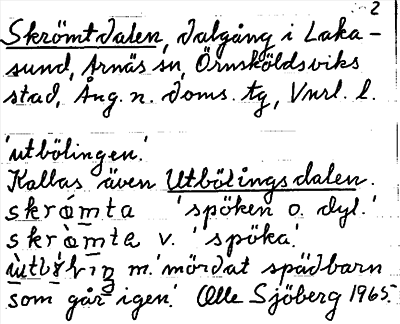 2
Skrömtdalen, dalgång i Laka-
sund, Arnäs sn, Örnsköldsviks
stad, Ång. n. doms. tg, Vnrl. l.
'utbölingen.'
Kallas även Utbölingsdalen.
skrömta 'spöken o. dyl.'
skrömta v. 'spöka.'
ùtböling m. 'mördat spädbarn
som går igen.' Olle Sjöberg 1965.